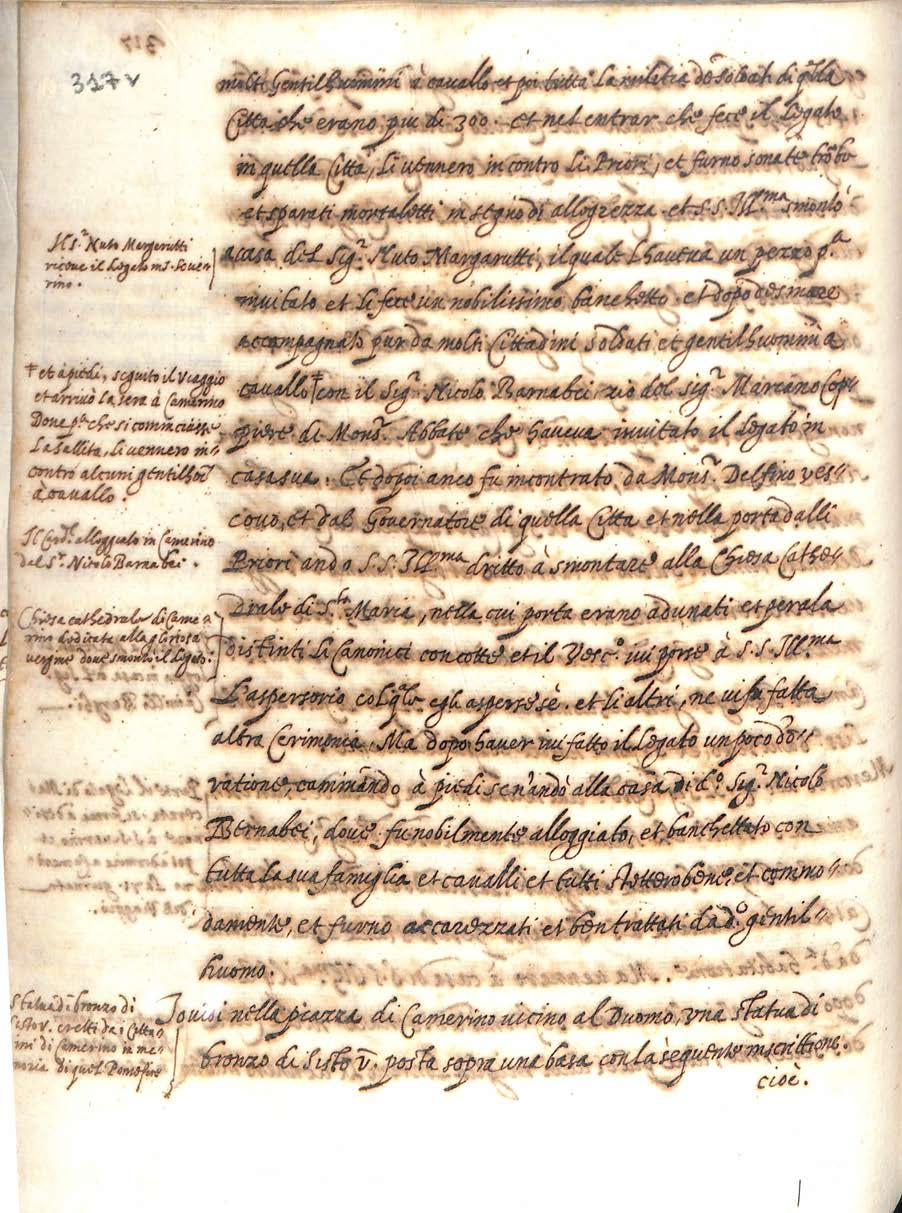 317v
molti Gentilhuomini à cavallo et poi tutta la militia de soldati di qlla
Citta che erano piu di 300. et nel entrar che fece il Legato
in quella Città, li vennero incontro li Priori, et furno sonate trõbe
et sparati mortaletti in segno di allegrezza et S. S. Ill.ma smontò
a casa del Sig.r Nuto Margarutti, il quale l'haveva un pezzo p.a
invitato et li fece un nobilissimo banchetto. et dopo desinare
accompagnato pur da molti Cittadini soldati et gentilhuomini a
cavallo ‡ con il Sig.r Nicolò Barnabei zio del Sig.r Mariano Cop-
piere di Mons.r Abbate che haveva invitato il Legato in
casa sua. Et dopoi anco fu incontrato, da Mons.r Delfino ves-
covo, et dal Governatore di quella Citta et nella porta dalli
Priori andò S. S. Ill.ma dritto à smontare alla Chiesa Cathe-
drale di S.ta Maria, nella cui porta erano adunati et per ala
distinti li Canonici con cotte et il Vesc.o ivi porse à S. S. Ill.ma
L'aspersorio col qle egli asperse sè. et li altri, ne vi fu fatta
altra Cerimonia, Ma dopo haver ivi fatto il Legato un poco d'o-
ratione, caminãndo à piedi se n'andò alla casa di d.o Sig.r Nicolò
Bernabei, dove fu nobilmente alloggiato, et banchettato con
tutta la sua famiglia et cavalli et tutti stettero bene et commo-
damente, et furno accarezzati et ben trattati da d.o gentil-
huomo.
Jovisi nella piazza di Camerino vicino al Duomo, una statua di
bronzo di Sisto V. posta sopra una basa con la seguente inscrittione.
cioè.
Il S.r Nuto Margarutti
riceve il Legato in S. Seve-
rino.
‡ et à piedi, seguitò il viaggio
et arrivò la sera à Camerino
Dove p.a che si cominciasse
La sallita, li vennero in-
contro alcuni gentilhoĩ
a cavallo.
Il Card.l alloggiato in Camerino
dal S.r Nicolo Barnabei.
Chiesa cathedrale di Came-
rino dedicata alla gloriosa
vergine dove smontò il Legato.
Statua di bronzo di
Sisto V. eretta dai Citta-
ni di Camerino in me-
moria di quel Pontefice